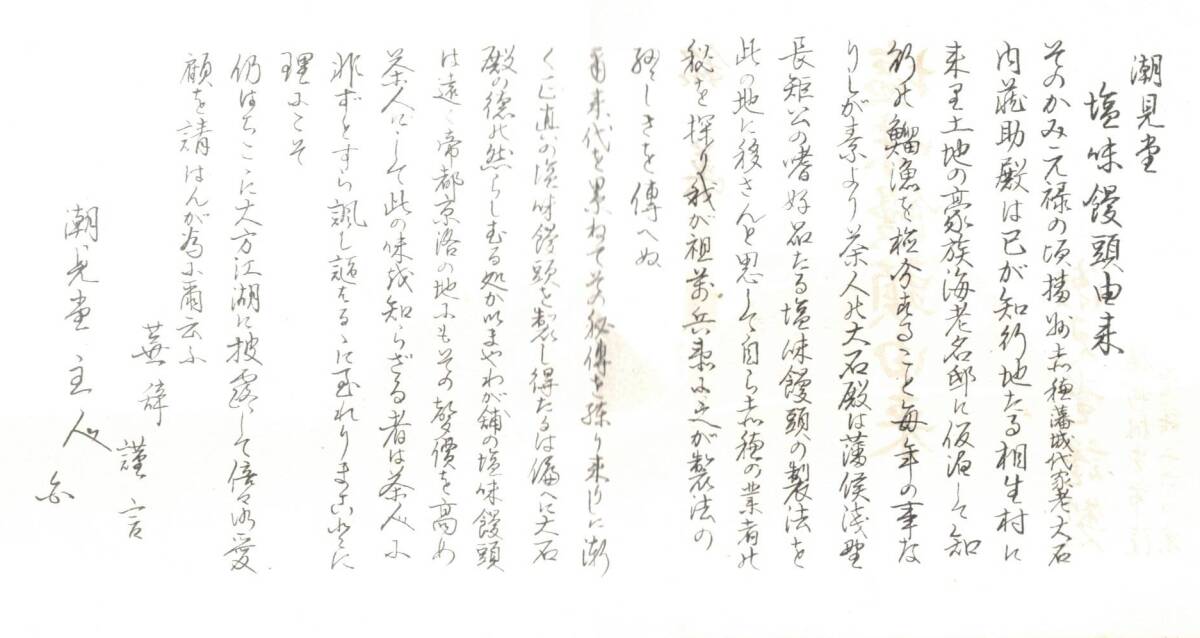 潮見堂
塩味饅頭由来
そのかみ元禄の頃播州赤穂藩城代家老大石
内蔵助殿は己が知行地たる相生村に
来り土地の豪族海老名邸に仮泊して知
行の鰡漁を検分すること毎年の事な
りしが素より茶人の大石殿は藩侯浅野
長矩公の嗜好品たる塩味饅頭の製法を
此の地に移さんと思して自ら赤穂の業者の
秘を探り我が祖萬兵衛に之が製法の
しきを傳へぬ
爾来代を累ねてその秘傳を採り来りしに漸
く正真の塩味饅頭を製し得たるは偏へに大石
殿の徳の然らしむる処か以まやわが舗の塩味饅頭
は遠く帝都京洛の地にもその聲價を高め
茶人にして此の味を知らざる者は茶人に
非ずとすら諷し謡はるゝに至れりまことに
理にこそ
仍はちこゝに大方江湖に披露して倍々御愛
顧を請はんが為に爾云ふ
蕪辞
謹言
潮見堂主人